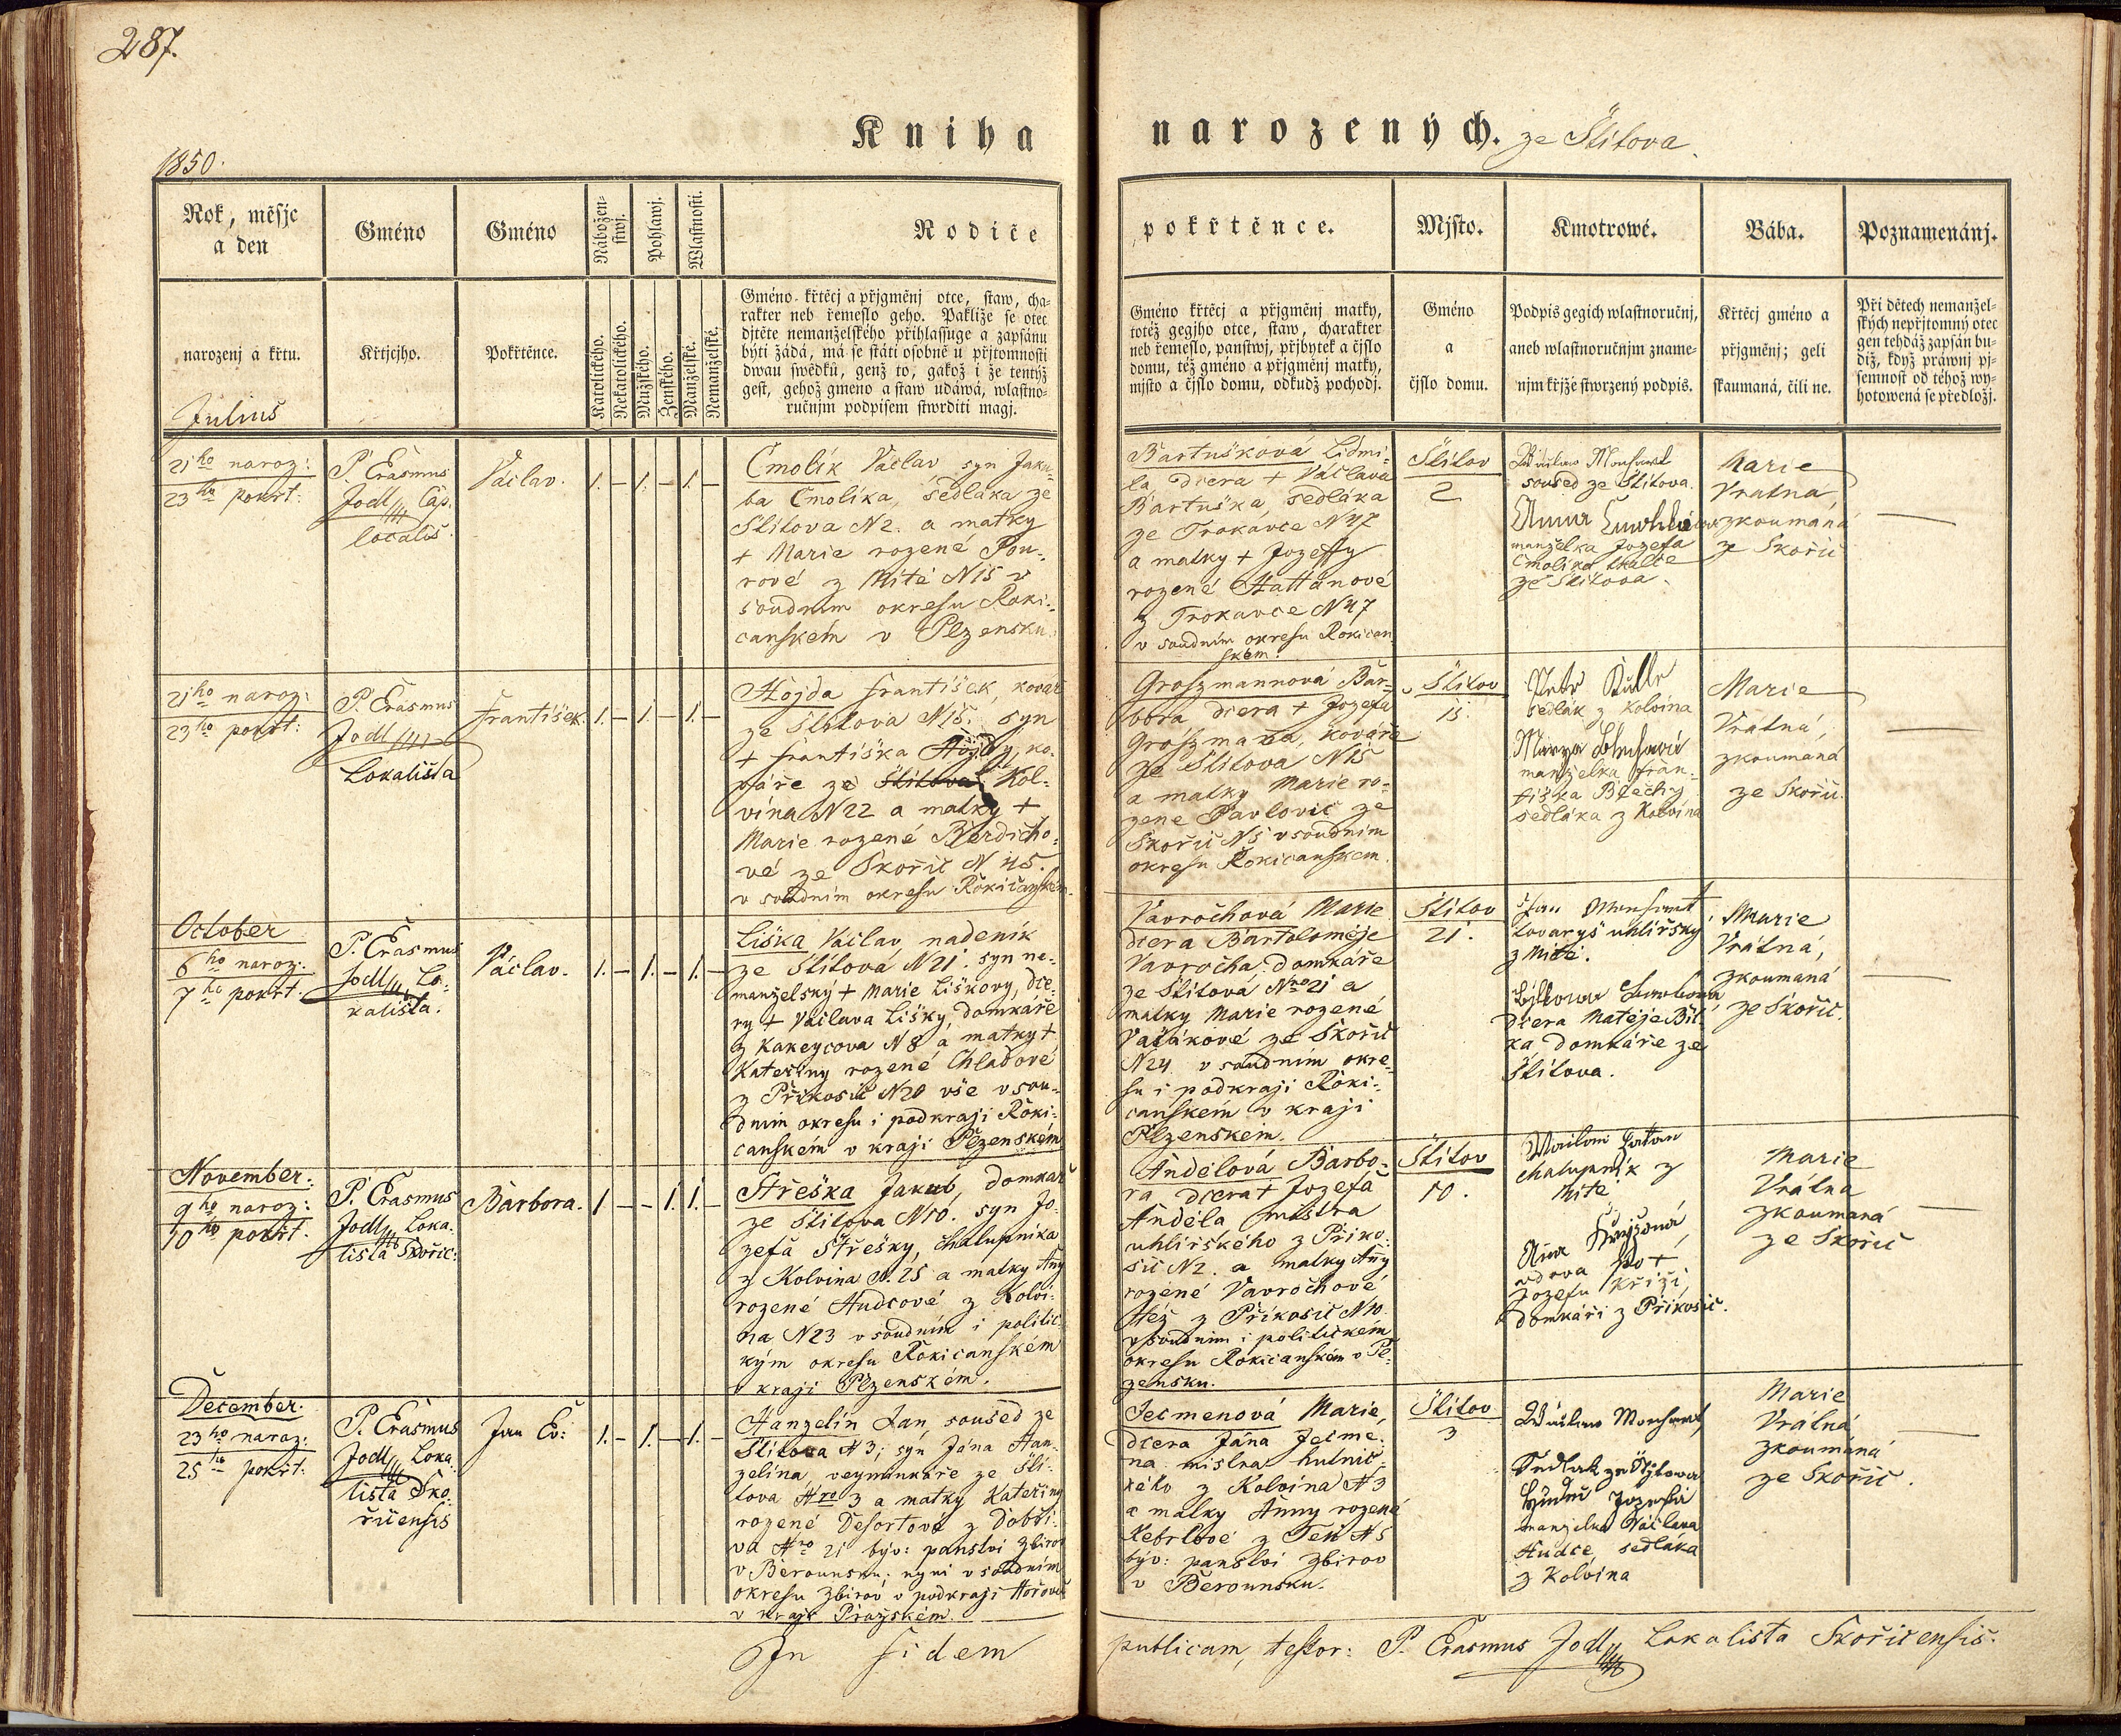 287.
Kniha
narozených. ze Štítova.
1850.
Rok, měsjc
a den
narozenj a křtu.
Julius
Gméno
Křtjcjho.
Gméno
Pokřtěnce.
Nábožen-
stwj.
Katolického.
Nekatolického.
Pohlawj.
Mužského.
Ženského.
Wlastnosti.
Manželské.
Nemanželské.
Rodiče
Gméno křtěcj a přjgměnj otce, staw, cha-
rakter neb řemeslo geho. Pakliže se otec
djtěte nemanželského přihlassuge a zapsánu
býti žádá, má se státi osobně u přjtomnosti
dwau swědků, genž to, gakož i že tentýž
gest, gehož gmeno a staw udáwá, wlastno-
ručnjm podpisem stwrditi magj.
pokřtěnce.
Gméno křtěcj a přjgměnj matky,
totéž gegjho otce, staw, charakter
neb řemeslo, panstwj, přjbytek a čjslo
domu, též gméno a přjgměnj matky,
mjsto a čjslo domu, odkudž pochodj.
Mjsto.
Gméno
a
čjslo domu.
Kmotrowé.
Podpis gegich wlastnoručnj,
aneb wlastnoručnjm zname-
njm křjže stwrzený podpis.
Bába.
Křtěcj gméno a
přjgměnj; geli
skaumaná, čili ne.
Poznamenánj.
Při dětech nemanžel-
ských nepřjtomný otec
gen tehdáž zapsán bu-
diž, když práwnj pj-
semnost od téhož wy-
hotowená se předložj.
21ho naroz:
23ho pokřt:
P. Erasmus
Jodl Cap.
localis.
Václav.
1. – 1. – 1. –
Čmolík Václav syn Jaku-
ba Čmolíka, sedláka ze
Štítova N2. a matky
+ Marie rozené Pou-
rové z Mítě N15 v
soudním okresu Roki-
canském v Plzensku.
Bartušková Lidmi-
la, dcera + Václava
Bartuška, sedláka
ze Trokavce N47
a matky + Jozeffy
rozené Hattanové
z Trokavce N47
v soudním okresu Rokican
ském.
Štítov
2
soused ze Štítova.
Anna
manželka Jozefa
Čmolíka
ze Štítova.
Marie
Vratná
zkoumaná
ze Skořic
21ho naroz:
23ho pokřt:
P. Erasmus
Jodl
Lokalista
František.
1. – 1. – 1. –
Hojda František, kovář
ze Štítova N15. syn
+ Františka Hojdy, ko-
váře ze Štítova Kol-
vína N22 a matky +
Marie rozené Berdicho-
vé ze Skořic N 45.
v soudním okresu Rokicanském.
Groszmannová Bar-
bora, dcera + Jozefa
Groszmana, kováře
ze Štítova N15
a matky Marie ro-
zené Pavlovic ze
Skořic N5 v soudním
okresu Rokicanském.
Štítov
15.
Petr
sedlák z Kolvína
manželka Fran-
tiška Blechy
sedláka z Kolvína
Marie
Vratná,
zkoumaná
ze Skořic.
October
6ho naroz:
7ho pokřt.
P. Erasmus
Jodl, Lo-
kalista.
Václav.
1. – 1. – 1. –
Liška Václav, nadeník
ze Štítova N21. syn ne-
manželský + Marie Liškovy, dce-
ry + Václava Lišky, domkáře
z Kakeycova N8 a matky +
Kateřiny rozené Chladové
z Příkosic N20 vše v sou-
dním okresu i podkraji Roki-
canském v kraji Plzenském
Vavrochová Marie
dcera Bartoloměje
Vavrocha domkáře
ze Štítova Nro21 a
matky Marie rozené
Vašákové ze Skořic
N24 v soudním okre-
su i podkraji Roki-
canském v kraji
Plzenském.
Štítov
21.
Jan
tovaryš uhlířský
z Mítě.
dcera Matěje Bít-
ka domkáře ze
Štítova.
Marie
Vrátná,
zkoumaná
ze Skořic.
November.
9ho naroz:
10ho pokřt.
P. Erasmus
Jodl Loka-
lista Skořic:
Barbora.
1 – – 1. 1. –
Střeška Jakub, domkář
ze Štítova N10. syn Jo-
zefa Střešky, chalupníka
z Kolvína N. 25 a matky Any
rozené Hudcové z Kolví-
na N23 v soudním i politic-
kým okresu Rokicanském
v kraji Plzenském.
Andělová Barbo-
ra, dcera + Jozefa
Anděla mistra
uhlířského z Příko-
sic N2. a matky Any
rozené Vavrochové
též z Příkosic N10.
v soudním i politickém
okresu Rokicanském v Pl-
zensku.
Štítov
10.
chalupník z
Mítě
Ana
vdova po +
Jozefu Kříži,
domkáři z Příkosic.
Marie
Vrátná
zkoumaná
ze Skořic
December.
23ho naroz:
25ho pokřt:
P. Erasmus
Jodl Loka-
lista Sko-
řicensis
Jan Ev:
1. – 1. – 1. –
Hanzelín Jan, soused ze
Štítova N3; syn Jána Han-
zelína, veyminkáře ze Ští-
tova Nro 3 a matky Kateřiny
rozené Desortové z Dobří-
va Nro 21 býv: panství Zbirov
v Berounsku. nyní v soudním
okresu Zbirov v podkraji Hořovic
v kraji Pražském.
Ječmenová Marie,
dcera Jána Ječme-
na mistra hutnic-
kého z Kolvína N3
a matky Anny rozené
Kebrlové z Těň N5
býv: panství Zbirov
v Berounsku.
Štítov
3
manželka Václava
Hudce sedláka
z Kolvína
Marie
Vrátná
zkoumáná
ze Skořic.
In fidem
publicam, testor: P. Erasmus Jodl Lokalista Skořicensis.